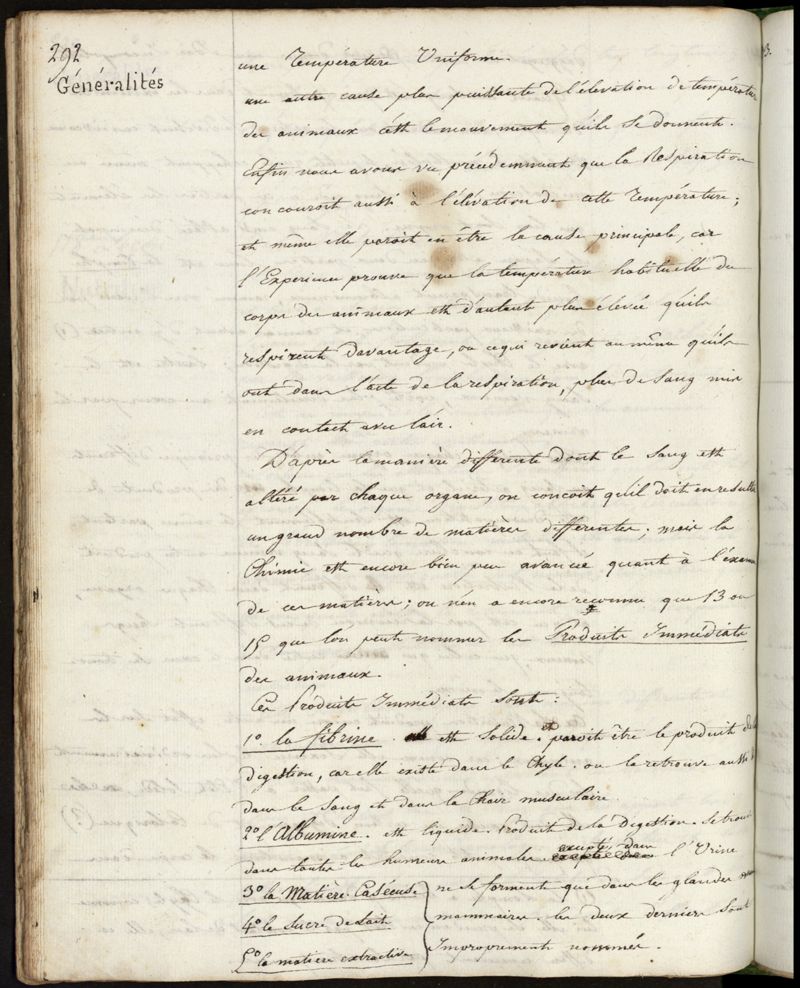 292
Généralités
une Température Uniforme.
une autre cause plus puissante de l'élevation de température
des animaux c'est le mouvement qu'ils se donnent.
Enfin nous avons vu précédemment que la Respiration
concouroit aussi à l'élévation de cette Température;
et même elle paroit en être la cause principale, car
l'Experience prouve que la température habituelle du
corps des animaux est d'autant plus élevée qu'ils
respirent davantage, ou ce qui revient au même qu'ils
ont dans l'acte de la respiration, plus de Sang mis
en contact avec l'air.
D'après la manière differente dont le Sang est
altéré par chaque organe, on concoit qu'il doit en resulter
un grand nombre de matières differentes; mais la
Chimie est encore bien peu avancée quant à l'éxamen
de ces matières; on n'en a encore reconnu que 13 ou
15 que l'on peut nommer les Produits Immédiats
des animaux.
Ces Produits Immédiats sont:
1º. la fibrine. est Solide. et paroit être le produit de la
digestion, car elle existe dans le Chyle. on la retrouve aussi
dans le Sang et dans la Chair musculaire.
2º l'Albumine. est liquide. Produit de la Digestion. se trouve
dans toutes les humeurs animales. excepté dans l'Urine
3º la Matière Caséeuse. ne se forment que dans les glandes
4º le Sucre de Lait mammaires. les deux derniers sont
5º la matiere extractive Improprement nommés.